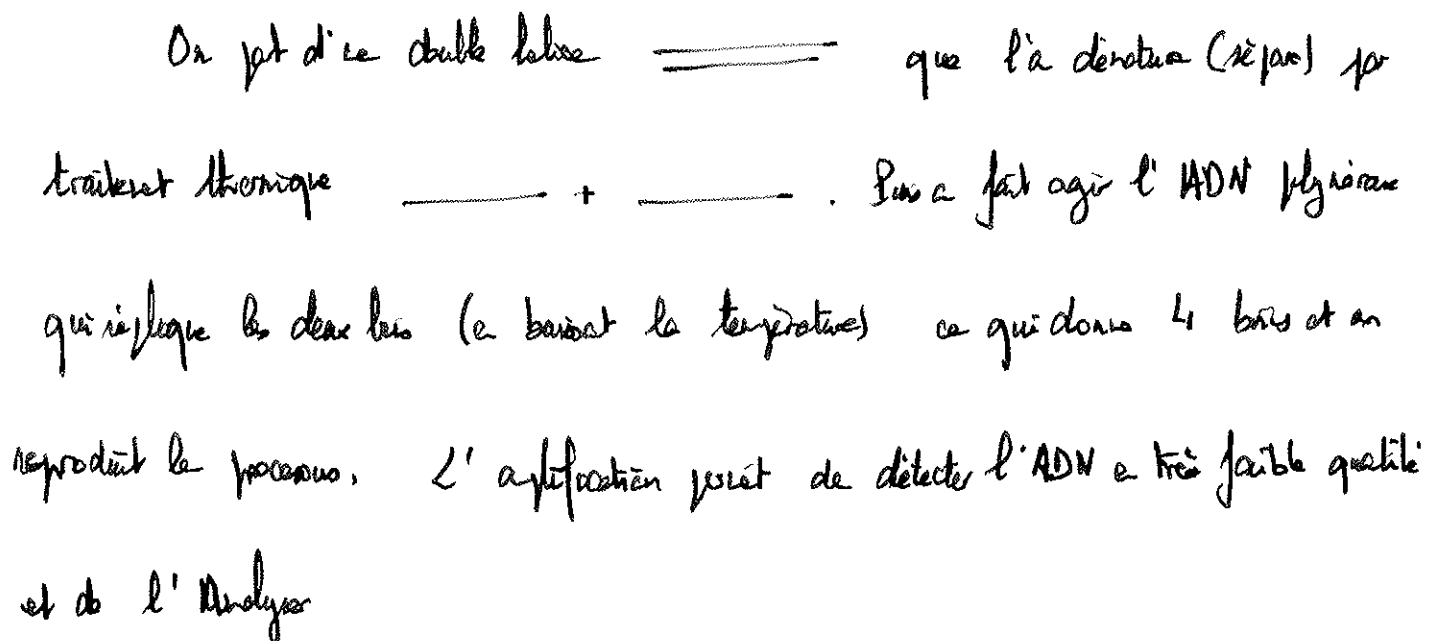 On part d'une double hélice que l'on dénature (sépare) par
traitement thermique + . Puis on fait agir l'ADN polymérase
qui réplique les deux brins (en baissant la température) ce qui donne 4 brins et on
reproduit le processus. L'amplification permet de détecter l'ADN en très faible quantité
et de l'Analyser